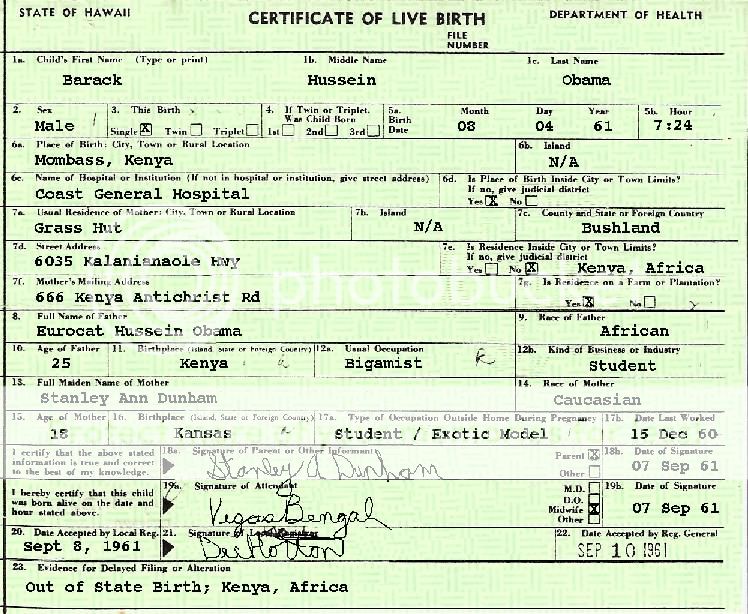 STATE OF HAWAII CERTIFICATE OF LIVE BIRTH DEPARTMENT OF HEALTH
FILE NUMBER
1a. Child's First Name (Type or print) 1b. Middle Name 1c. Last Name
Barack Hussein Obama
2. Sex 3. This Birth 4. If Twin or Triplet, Was Child Born 5a. Birth Date Month Day Year 5b. Hour
Male Single X Twin Triplet 1st 2nd 3rd 08 04 61 7:24
6a. Place of Birth: City, Town or Rural Location 6b. Island
Mombass, Kenya N/A
6c. Name of Hospital or Institution (If not in hospital or institution, give street address) 6d. Is Place of Birth Inside City or Town Limits? If no, give judicial district
Coast General Hospital Yes X No
7a. Usual Residence of Mother: City, Town or Rural Location 7b. Island 7c. County and State or Foreign Country
Grass Hut N/A Bushland
7d. Street Address 7e. Is Residence Inside City or Town Limits? If no, give judicial district
6035 Kalanianaole Hwy Yes No X Kenya, Africa
7f. Mother's Mailing Address 7g. Is Residence on a Farm or Plantation?
666 Kenya Antichrist Rd Yes X No
8. Full Name of Father 9. Race of Father
Eurocat Hussein Obama African
10. Age of Father 11. Birthplace (Island, State or Foreign Country) 12a. Usual Occupation 12b. Kind of Business or Industry
25 Kenya Bigamist Student
13. Full Maiden Name of Mother 14. Race of Mother
Stanley Ann Dunham Caucasian
15. Age of Mother 16. Birthplace (Island, State or Foreign Country) 17a. Type of Occupation Outside Home During Pregnancy 17b. Date Last Worked
18 Kansas Student / Exotic Model 15 Dec 60
I certify that the above stated information is true and correct to the best of my knowledge. 18a. Signature of Parent or Other Informant Parent X Other 18b. Date of Signature
Stanley A Dunham 07 Sep 61
I hereby certify that this child was born alive on the date and hour stated above. 19a. Signature of Attendant M.D. D.O. Midwife X Other 19b. Date of Signature
Vegas Bengal 07 Sep 61
20. Date Accepted by Local Reg. 21. Signature of Local Registrar 22. Date Accepted by Reg. General
Sept 8, 1961 SEP 10 1961
23. Evidence for Delayed Filing or Alteration
Out of State Birth; Kenya, Africa
photobucket